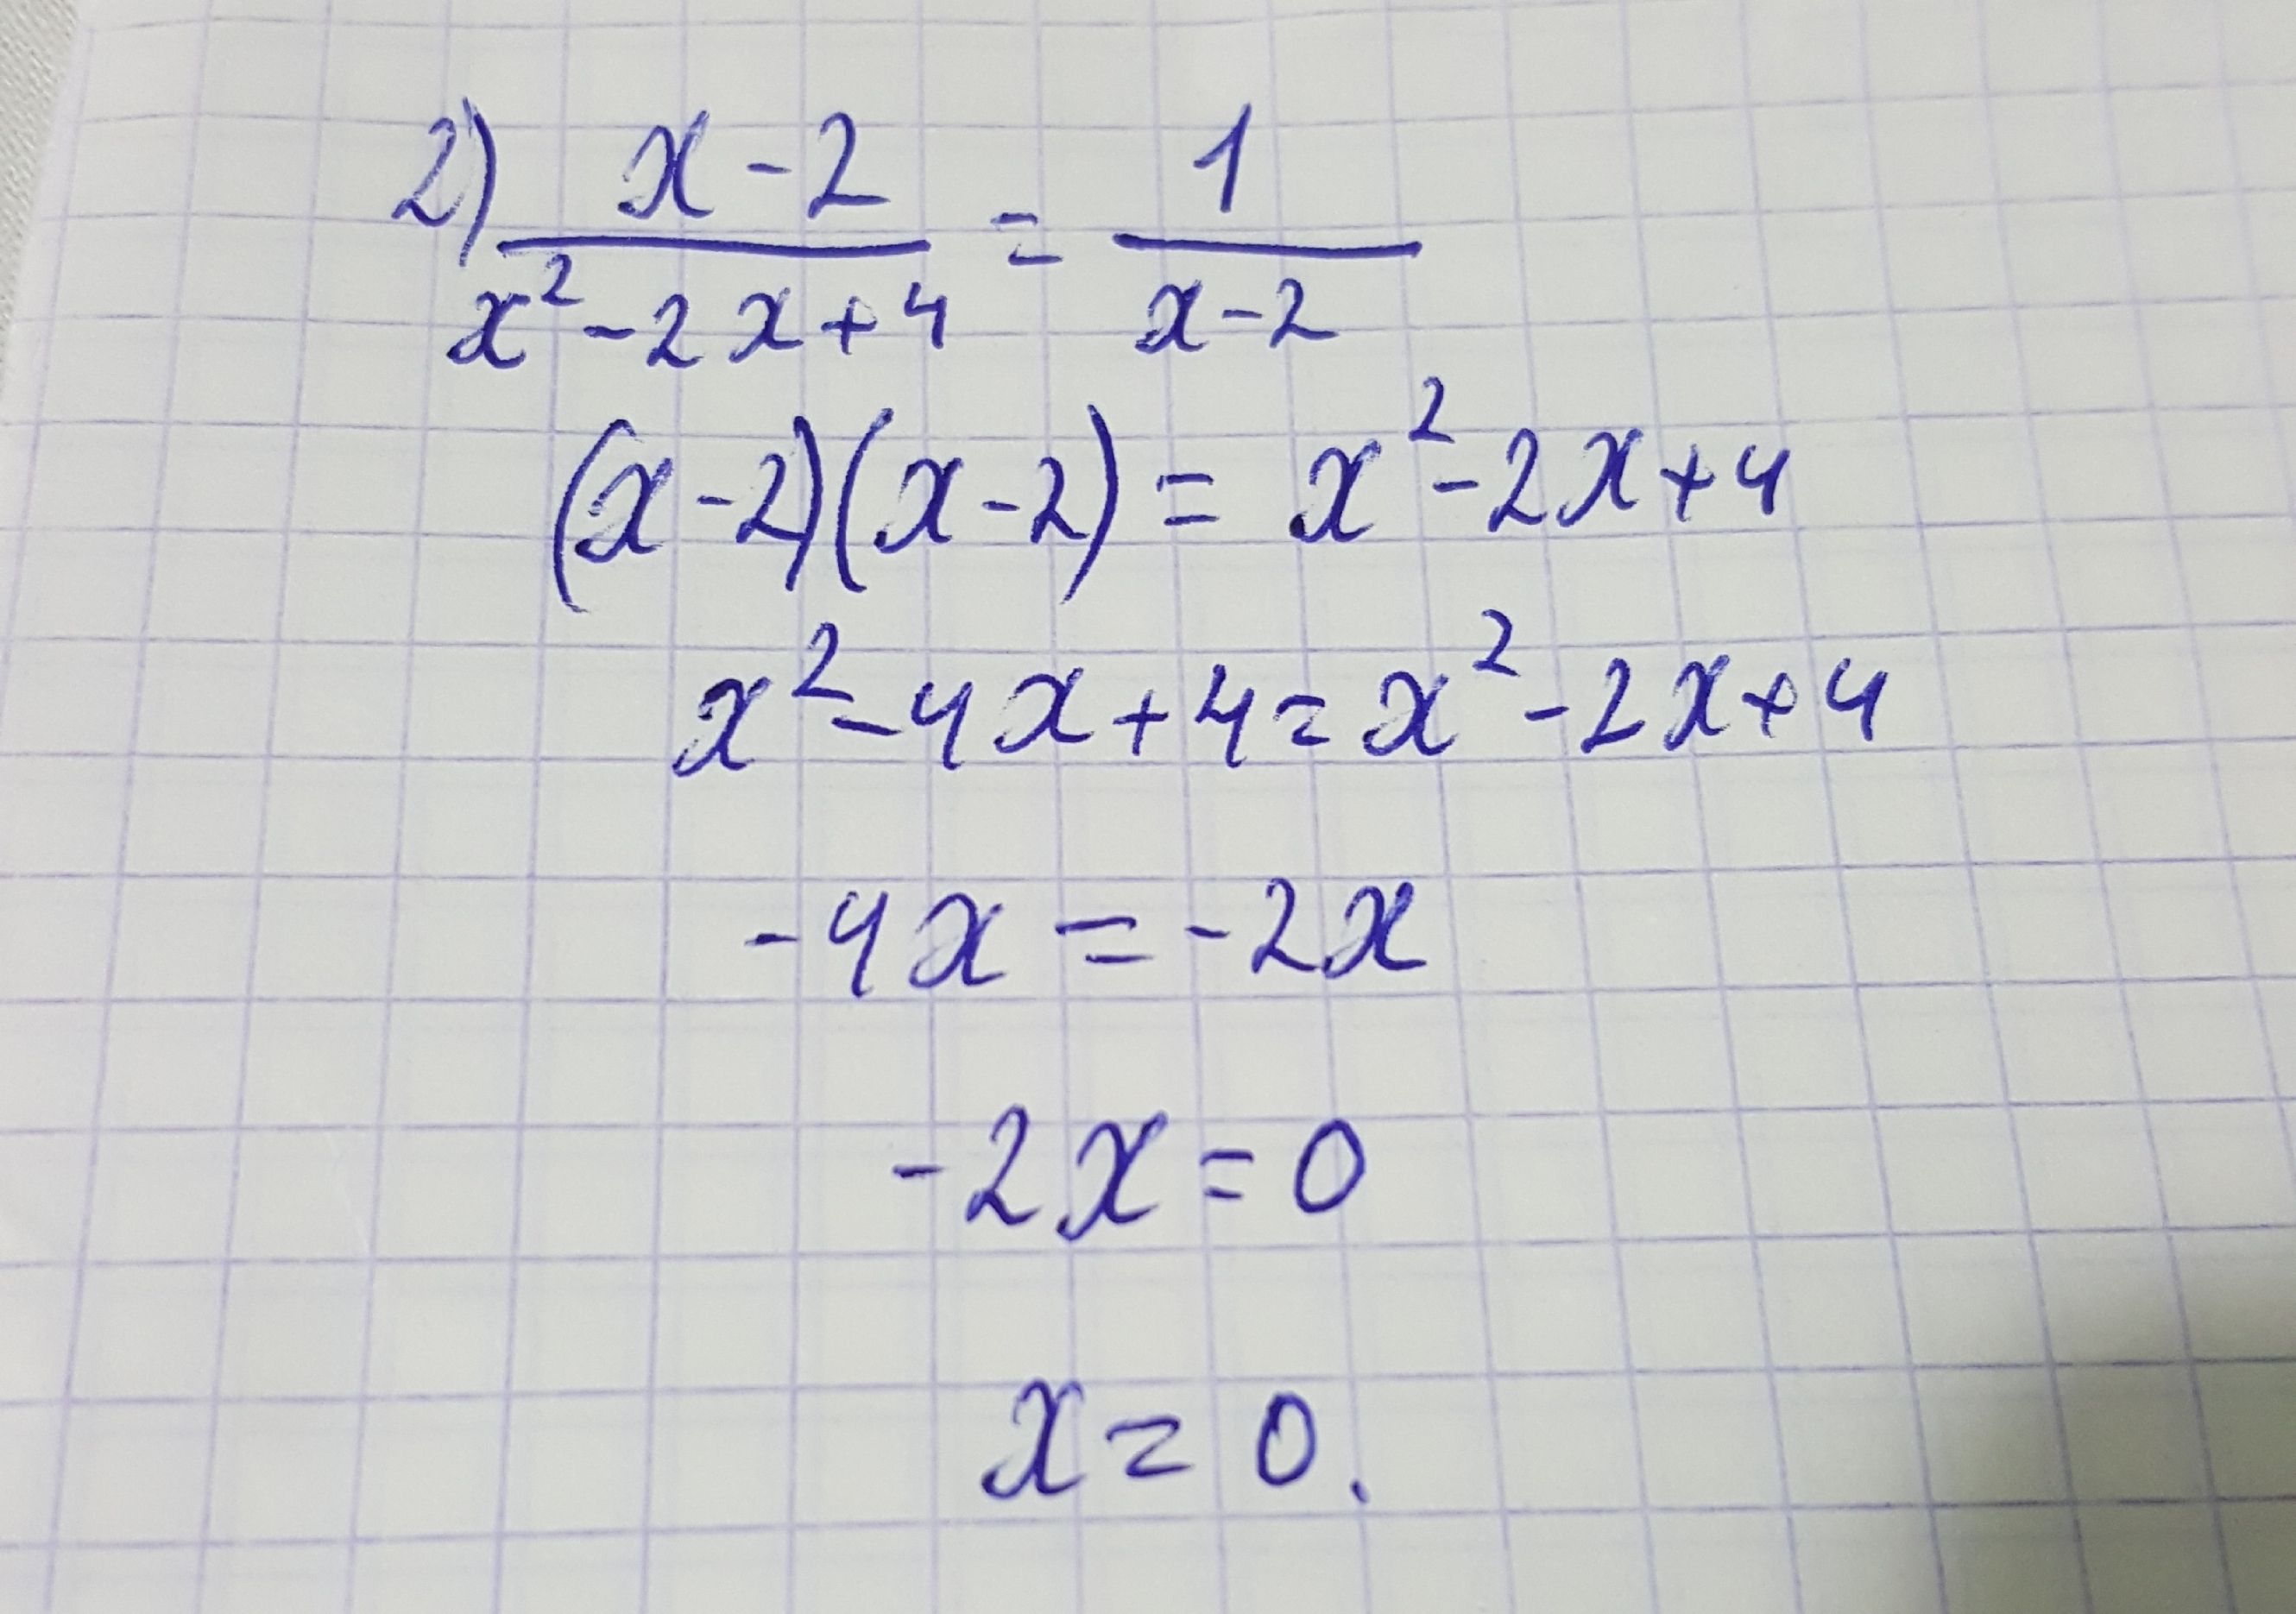 2) x-2 / x²-2x+4 = 1 / x-2
(x-2)(x-2) = x²-2x+4
x²-4x+4=x²-2x+4
-4x=-2x
-2x=0
x=0.